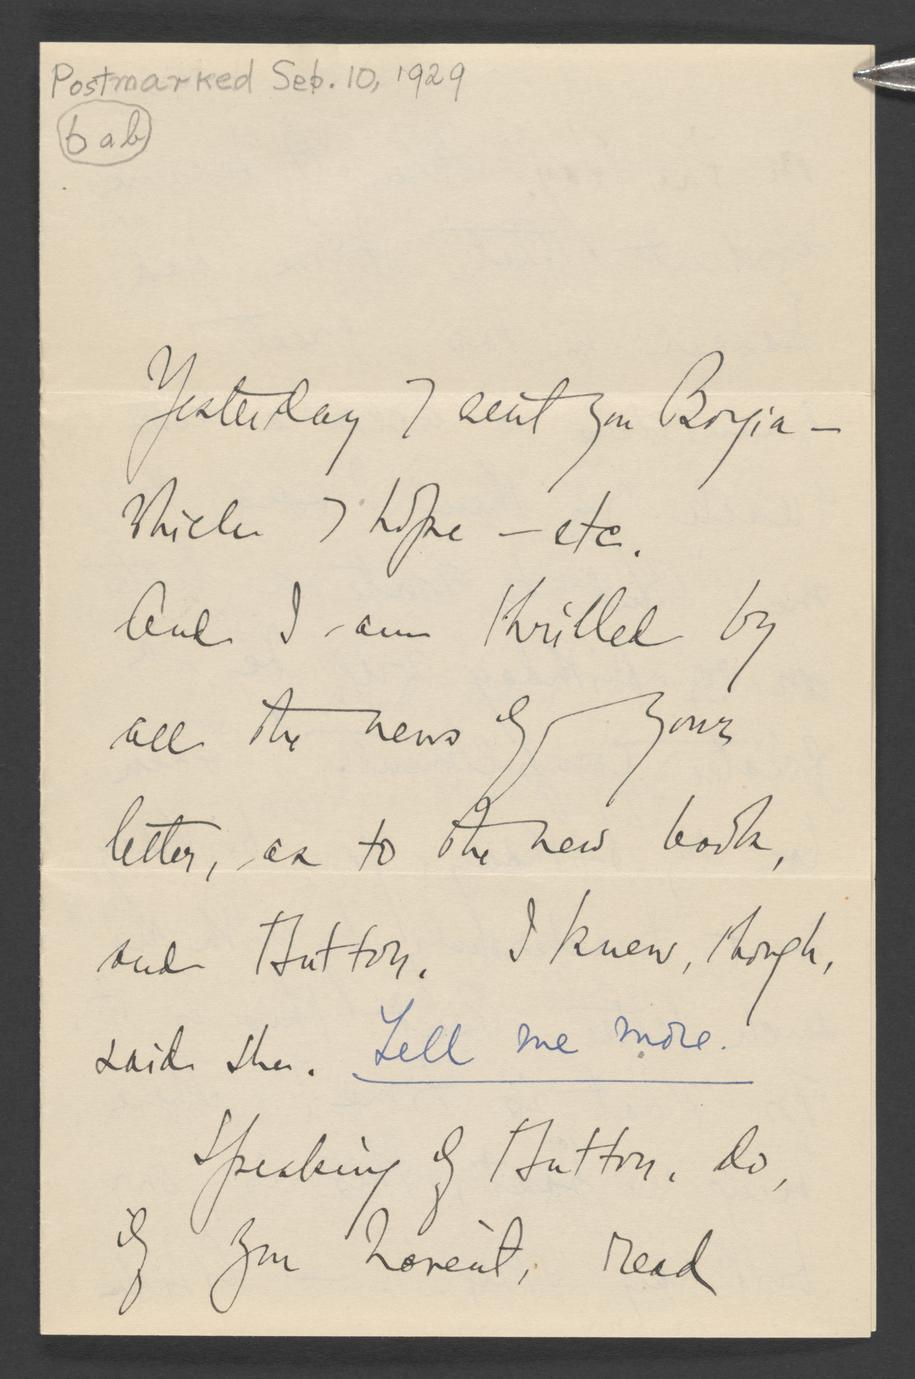 Postmarked Sep. 10, 1929
6 ab
Yesterday I sent you Borgia —
Which I hope — etc.
And I am thrilled by
all the news of your
letter, as to the new book,
and Hutton. I knew, though,
said she. Tell me more.
Speaking of Hutton, do,
if you haven't, read